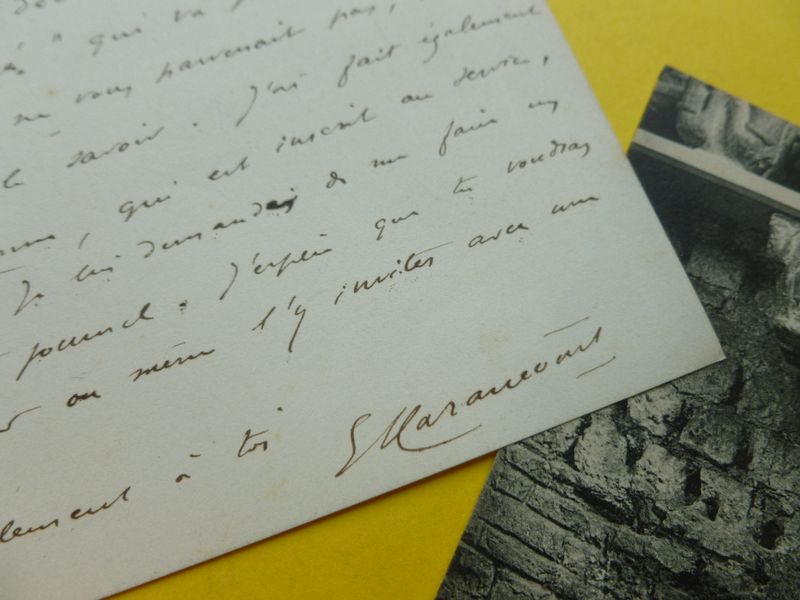 qui va
ne vous parvenait pas,
le savoir. J'ai fait également
, qui est inscrit au service,
Je lui demandais de me faire un
journal. J'espère que tu voudras
ou même l'y inviter avec un
à toi
GMaraucourt